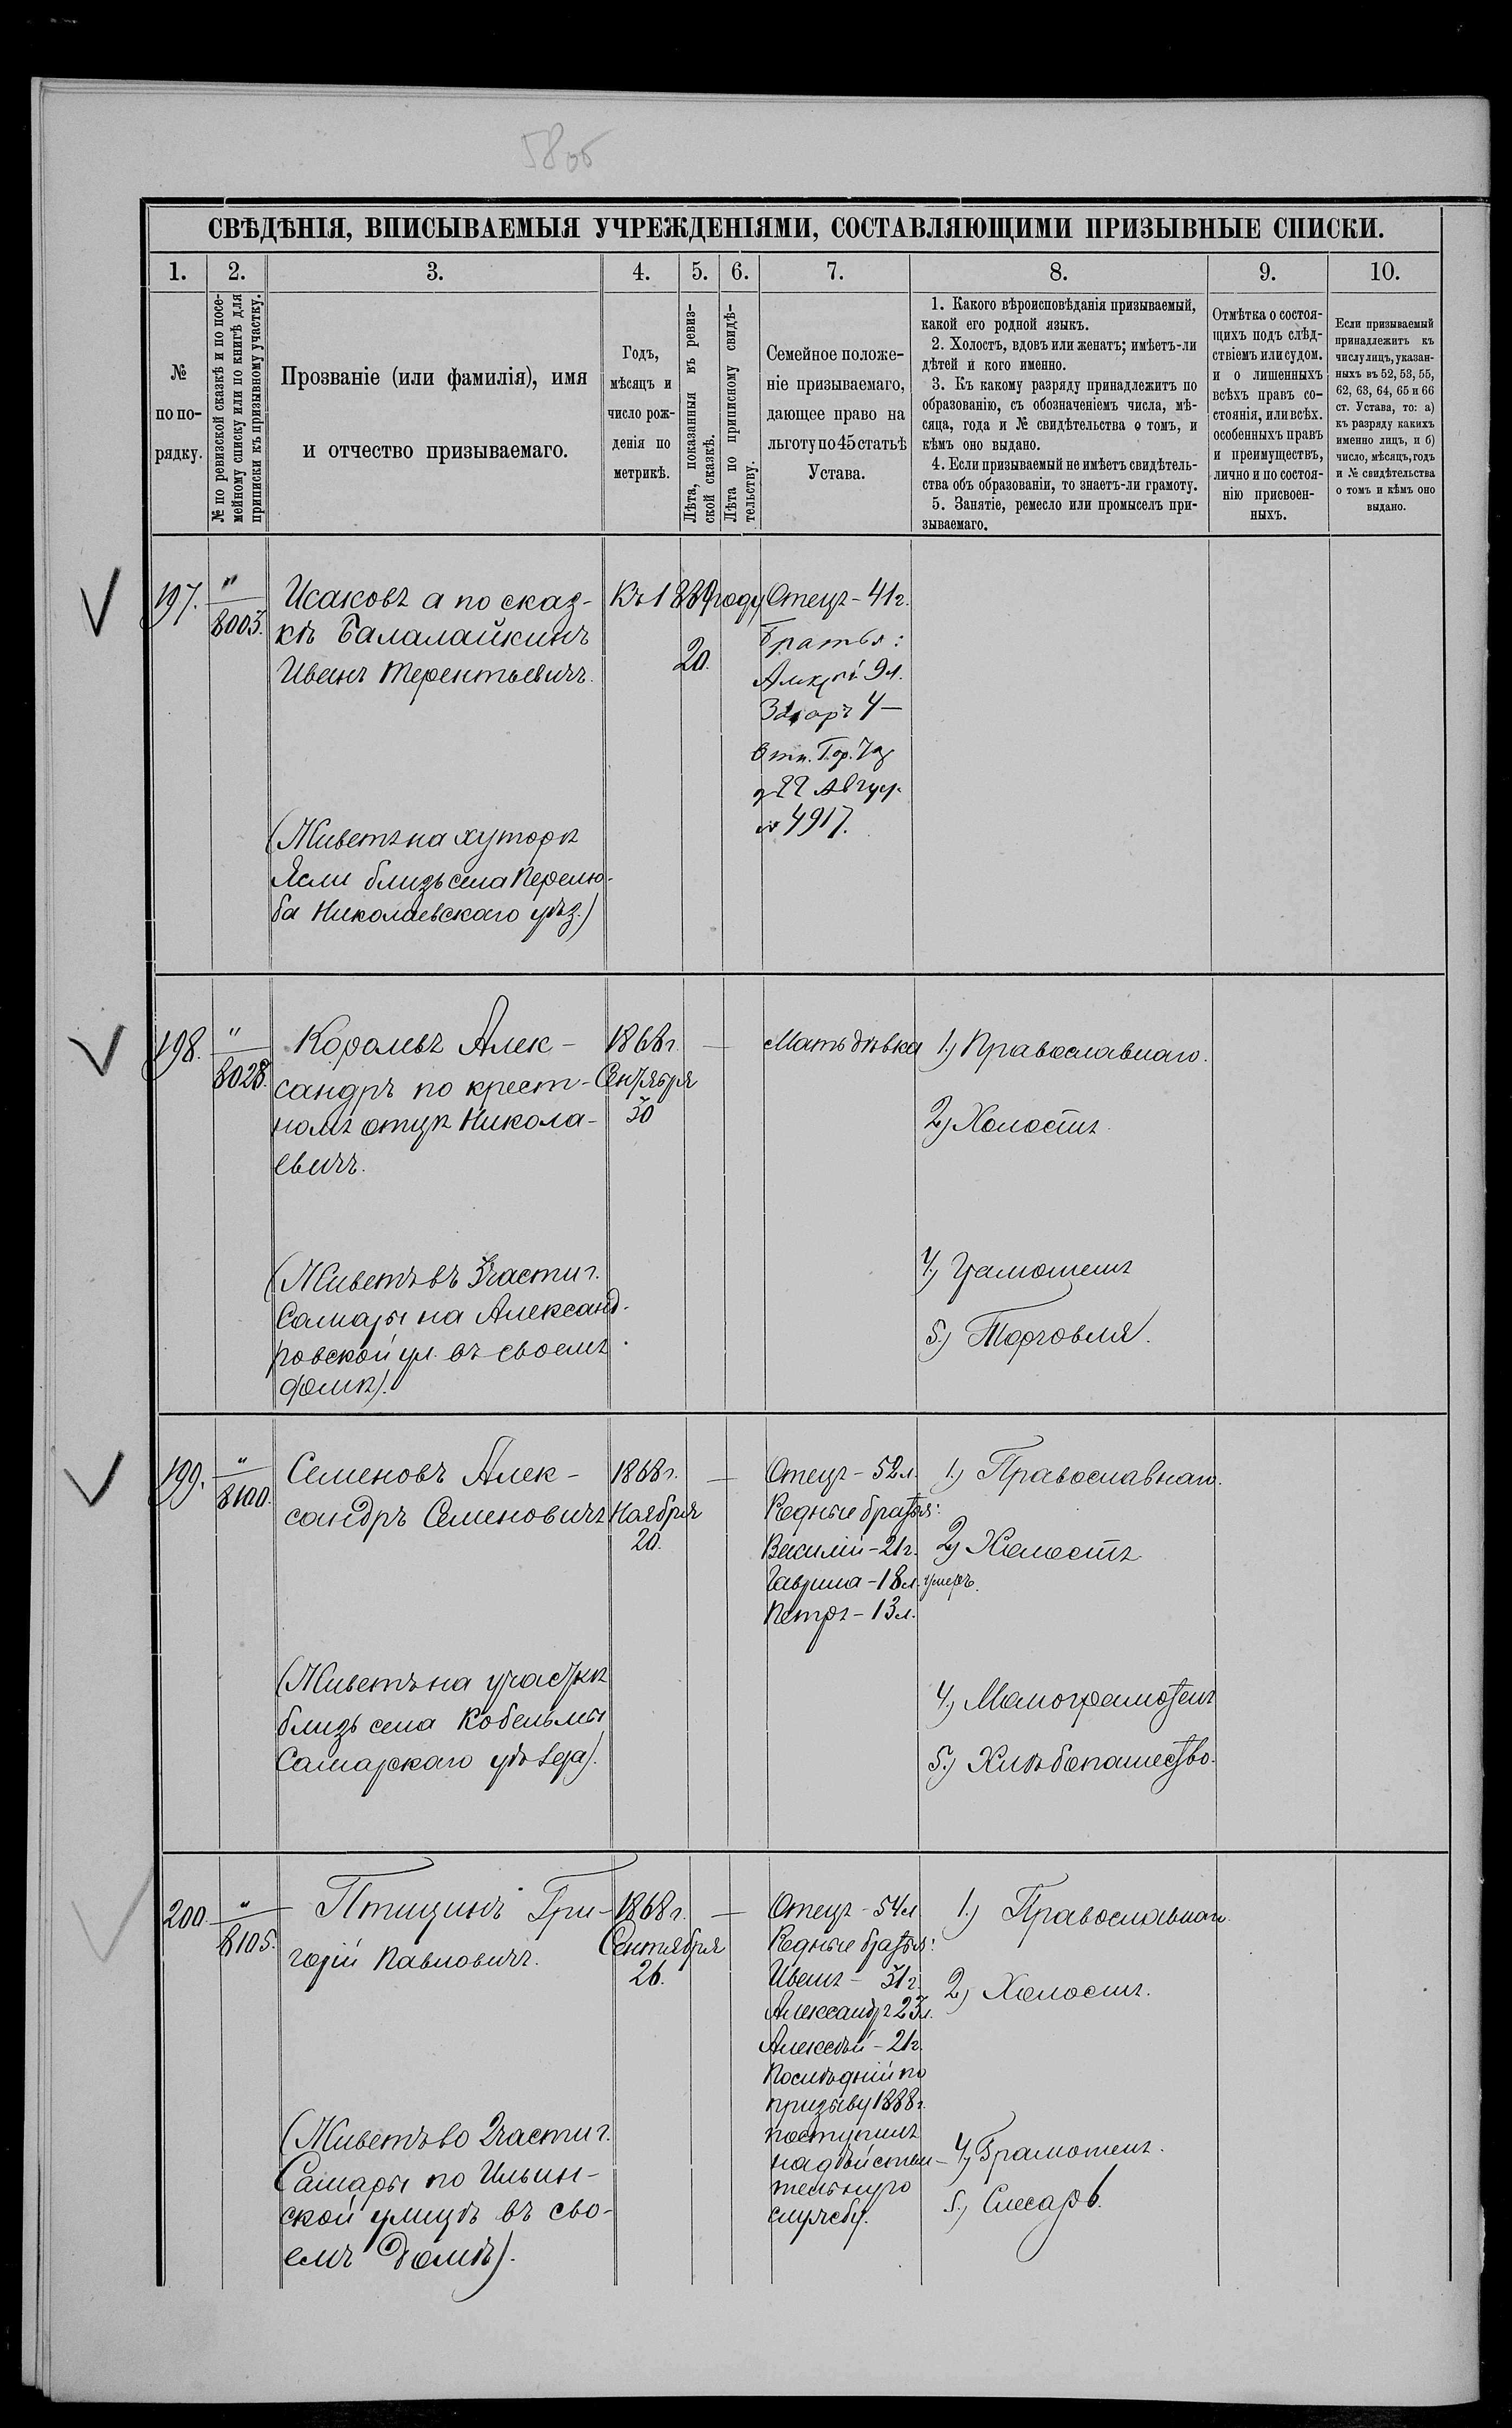 58об
СВѢДѢНІЯ, ВПИСЫВАЕМЫЯ УЧРЕЖДЕНІЯМИ, СОСТАВЛЯЮЩИМИ ПРИЗЫВНЫЕ СПИСКИ.
1. 2. 3. 4. 5. 6. 7. 8. 9. 10.
№
по по-
рядку.
№ по ревизской сказкѣ и по посе-
мейному списку или по книгѣ для
приписки къ призывному участку.
Прозваніе (или фамилія), имя
и отчество призываемаго.
Годъ,
мѣсяцъ и
число рож-
денія по
метрикѣ.
Лѣта, показанныя въ ревиз-
ской сказкѣ.
Лѣта по приписному свидѣ-
тельству.
Семейное положе-
ніе призываемаго,
дающее право на
льготу по 45 статьѣ
Устава.
1. Какого вѣроисповѣданія призываемый,
какой его родной языкъ.
2. Холостъ, вдовъ или женатъ; имѣетъ-ли
дѣтей и кого именно.
3. Къ какому разряду принадлежитъ по
образованію, съ обозначеніемъ числа, мѣ-
сяца, года и № свидѣтельства о томъ, и
кѣмъ оно выдано.
4. Если призываемый не имѣетъ свидѣтель-
ства объ образованіи, то знаетъ-ли грамоту.
5. Занятіе, ремесло или промыселъ при-
зываемаго.
Отмѣтка о состоя-
щихъ подъ слѣд-
ствіемъ или судом.
и о лишенныхъ
всѣхъ правъ со-
стоянія, или всѣх.
особенныхъ правъ
и преимуществъ,
лично и по состоя-
нію присвоен-
ныхъ.
Если призываемый
принадлежитъ къ
числу лицъ, указан-
ныхъ въ 52, 53, 55,
62, 63, 64, 65 и 66
ст. Устава, то: а)
къ разряду какихъ
именно лицъ, и б)
число, мѣсяцъ, годъ
и № свидѣтельства
о томъ и кѣмъ оно
выдано.
197.
"
8003.
Исаковъ а по сказ-
кѣ Балалайкинъ
Иванъ Терентьевичъ.
(Живетъ на хуторѣ
Ясли близь села Перелю-
ба Николаевскаго уѣз.)
Къ 1889 году
20.
Отецъ - 41 г.
Братья:
9 л.
4 —
22 Август.
№ 4917.
198.
"
8028.
Королевъ Алек-
сандръ по крест-
номъ отцѣ Никола-
евичъ.
(Живетъ въ 3 части г.
Самары на Александ-
ровской ул. въ своемъ
домѣ).
1868 г.
Сентября
30
—
Мать дѣвка
1.) Православнаго.
2.) Холостъ.
4.) Грамотенъ
5.) Торговля.
199.
"
8100.
Семеновъ Алек-
сандръ Семеновичъ
(Живетъ на участкѣ
близь села Кобельмы
Самарскаго уѣзда).
1868 г.
Ноября
20.
—
Отецъ - 52 л.
Родные братья:
Василій - 21 г.
Гаврила - 18 л. умеръ.
Петръ - 13 л.
1.) Православнаго.
2.) Холостъ
4.) Малограмотенъ
5.) Хлѣбопашество.
200.
"
8105.
Птицинъ Гри-
горій Павловичъ.
(Живетъ во 2 части г.
Самары по Ильин-
ской улицѣ въ сво-
емъ домѣ).
1868 г.
Сентября
26.
—
Отецъ - 54 л.
Родные братья:
Иванъ - 31 г.
Александръ 23 л.
Алексѣй - 21 г.
Послѣдній по
призыву 1888 г.
поступилъ
на дѣйстви-
тельную
службу.
1.) Православнаго.
2.) Холостъ.
4.) Грамотенъ.
5.) Слесарь.